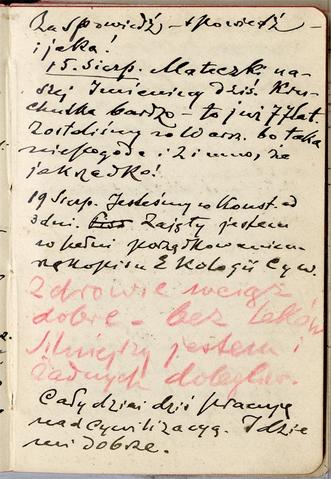 Za spowiedź – spowiedź –
i jaka!
15. Sierp. Mateczki na-
szej Imieniny dziś.
bardzo – to już 77 lat.
Zostaliśmy w Warsz. bo taka
niepogoda i zimno, że
jak rzadko!
19 Sierp. Jesteśmy w Konst. od
3 dni. Zajęty jestem
w pełni porządkowaniem
rękopisu Ekologii Cyw.
Zdrowie wciąż
dobre – bez leków
jestem i
żadnych dolegliw.
Cały dzień dziś pracuję
nad cywilizacyą. Idzie
mi dobrze.